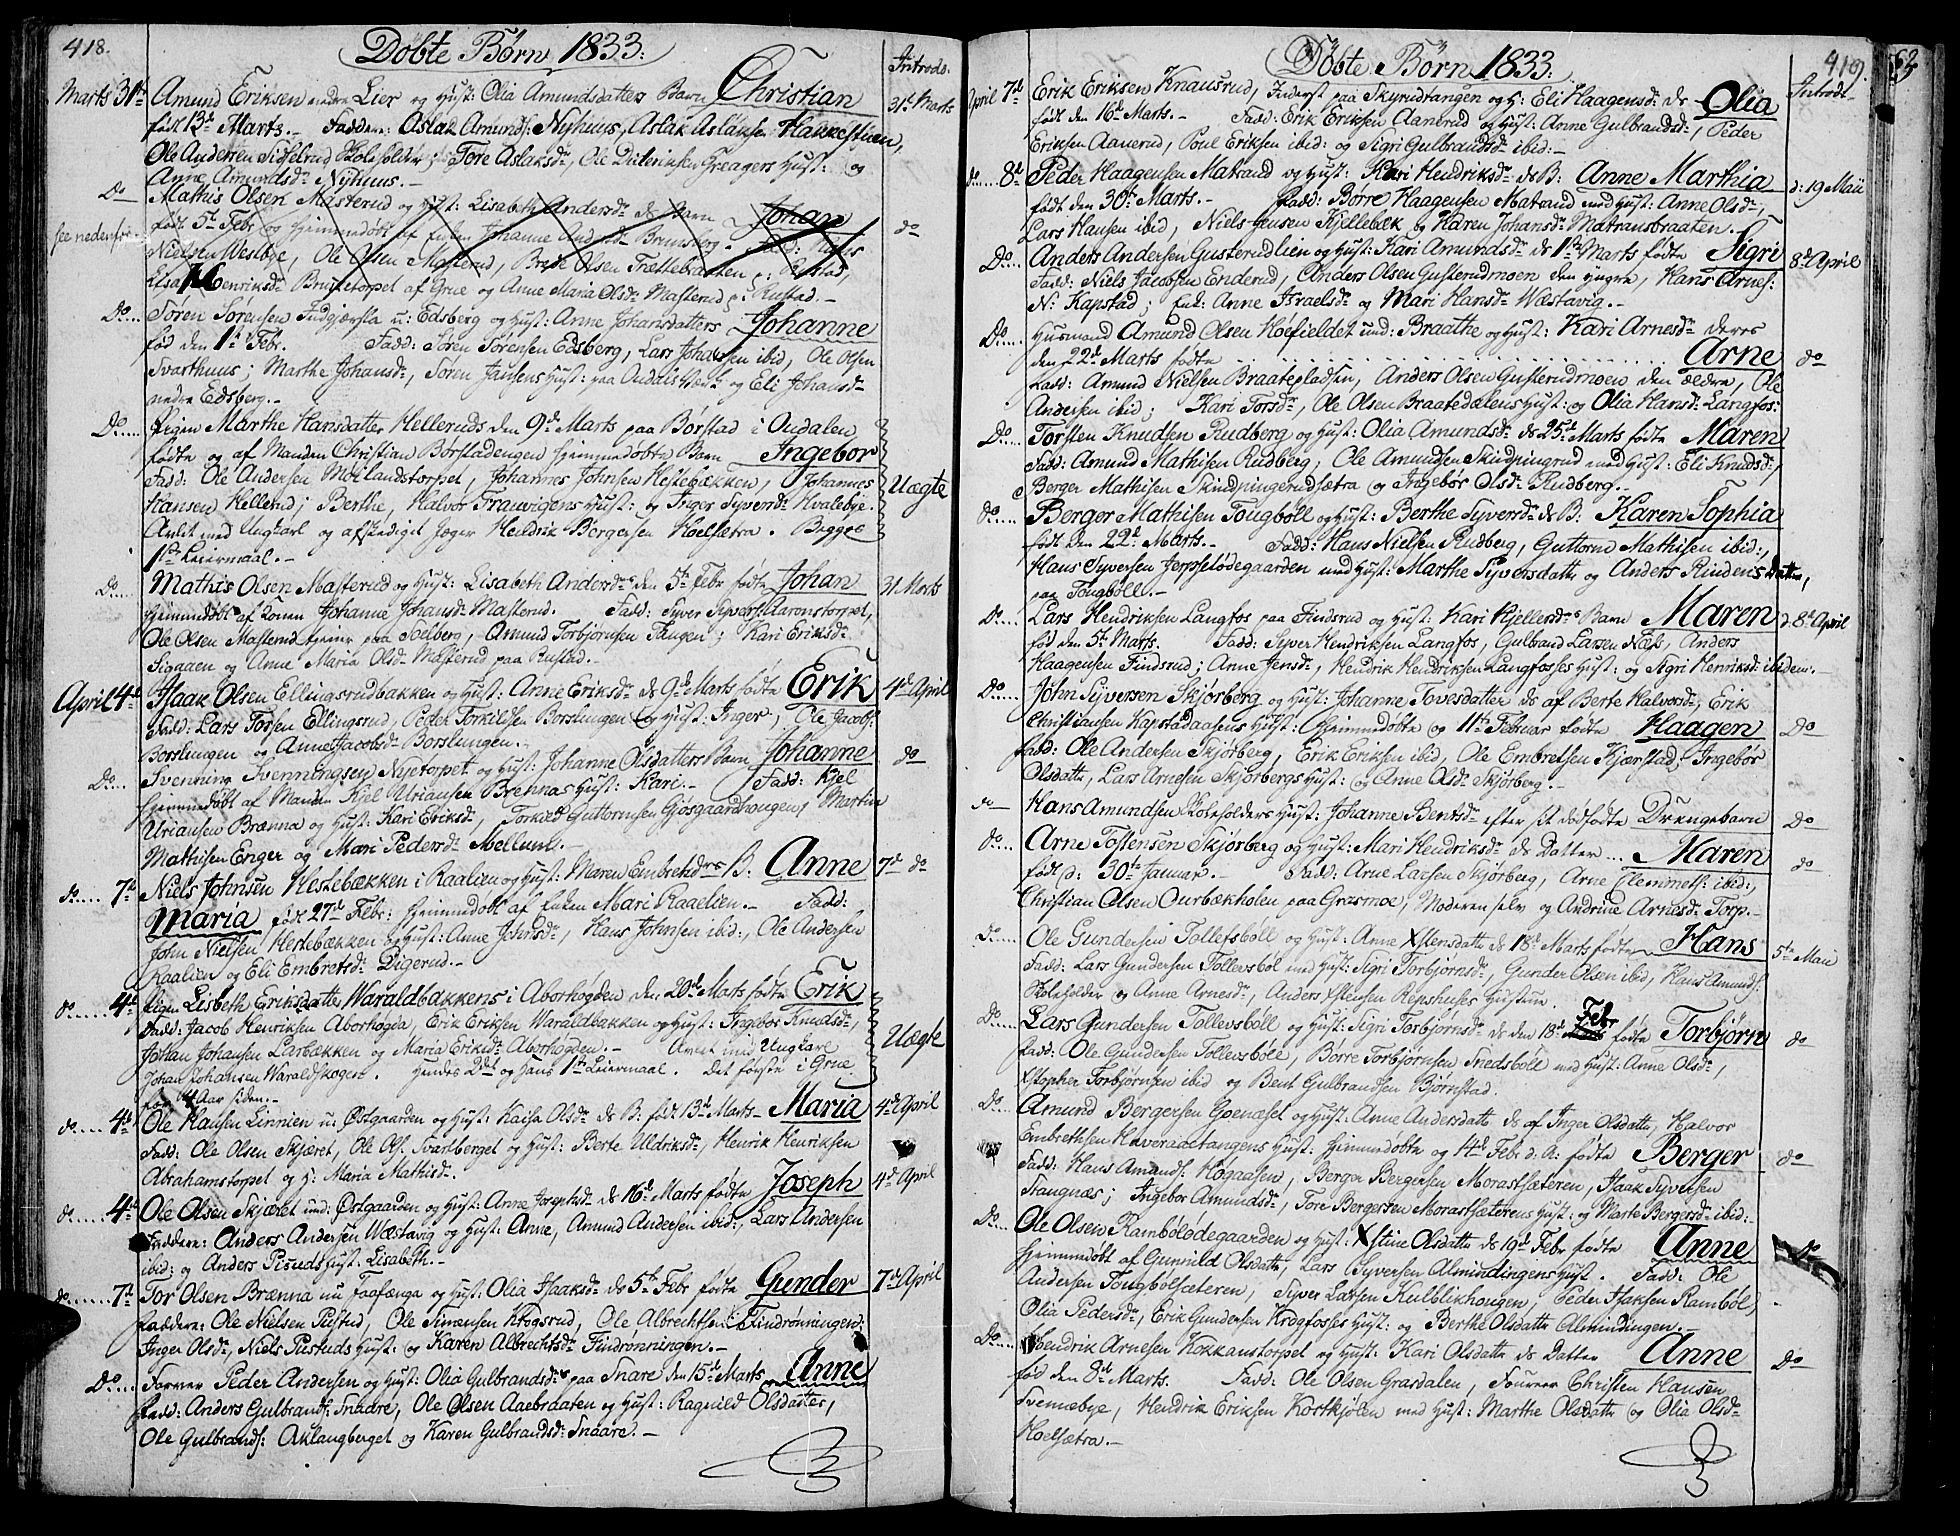 418.
Döbte Børn 1833.
Introds.
Marts 31te Amund Eriksen nedre Lier og Hust: Olia Amundsdatters Barn Christian 31te Marts
født 13de Marts.- Faddere: Aslak Amunds: Nyhuus, Aslak Aslaksen Haukestuen,
Ole Andersen Sidselrud Skoleholder; Tore Aslaksdr, Ole Dideriksen Greagers Hust: og
Anne Amundsdr Nyhuus.-
Do Mathis Olsen Masterud og Hust: Lisabeth Andersdr de Barn Johan do
see nedenfor født 5te Febr og hjemmedøbt af Johanne - Fadd:
Nielsen Westbye, Ole Olsen Masterud, Brede Olsen
Henriksdr Bruketorpet af Grue og Anne Maria Olsdr Masterud p: Rustad.-
Do... Søren Sørensen u: Edsberg og Hust: Anne Johansdatters Johanne
fød den 1te Febr. Fadd: Søren Sørensen Edsberg, Lars Johansen ibid, Ole Olsen
Svarthuus; Marthe Johansdr, Søren Jansens Hust: paa og Eli Johansdr
nedre Edsberg.-
Do... Pigen Marthe Hansdatter Helleruds den 9de Marts paa Børstad i Oudalen
fødte og af Manden Christian Børstadengen hjemmedøbte Barn Ingebor
Fadd: Ole Andersen Moilandstorpet, Johannes Johnsen Hestebækken, Johannes Uægte
Hansen Hellerud; Berthe, Halvor Trauvigens Hust: og Inger Syversdr Hvalebye.
Avlet med Ungkarl og afskediget Jæger Hendrik Bergersen Hoelsætra. Begges
1ste Leiermaal.-
Do... Mathis Olsen Masterud og Hust: Lisabeth Andersdrs den 5te Febr fødte Johan 31 Marts
hjemmedøbt af Konen Johanna Johansdr Masterud. Fadd: Syver Syvers: Aaronstorpet,
Ole Olsen Masterud tjener paa Solberg, Amund Torbjørnsen Tangen; Kari Eriksdr
Sigaaen og Anne Maria Olsdr Masterud paa Rustad.-
April 4de Isaak Olsen Ellingsrudbakken og Hust: Anne Eriksdr de 9de Marts fødte Erik 4de April
Fadd: Lars Torsen Ellingsrud, Peder Torkildsen Borslungen og Hust: Inger, Ole Jacobs:
Borslungen og Anne Jacobsdr Borslungen.-
Do... Svenning Svenningsen Nysetorpet og Hust: Johanne Olsdatters Barn Johanne do
hjemmedøbt af Manden Kjel Uriansen Brennas Hust: Kari.- Fadd: Kjel
Uriansen Brænna og Hust: Kari Eriksdr, Torkild Guttormsen Gjøsgaardhougen, Martin
Mathisen Enger og Mari Pedersdr Mellum.-
do.... 7de Niels Johnsen Hestebækken i Raalien og Hust: Maren Embretsdrs B: Anne 7de do
Maria født 27de Febr: hjemmedøbt af Enken Mari Raalien.- Fadd:
John Nielsen Hestebækken og Hust: Anne Johnsdr, Hans Johnsen ibid:, Ole Andersen
Raalien og Eli Embretsdr Digerud.-
do.... 4de Pigen Lisbeth Eriksdatter Waraldbakkens i Aborhogden den 20de Marts fødte Erik
Fadd: Jacob Henriksen Aborhøgda, Erik Eriksen Waraldbakken og Hust: Ingebor Knudsdr, Uægte
Johan Johansen Larbækken og Maria Eriksdr Aborhogden.- Avlet med Ungkarl
Johan Johansen Waraldskogen. Hendes 2det og hans 1ste Leiermaal. Det første i Grue
for 14 Aar siden.-
do.... 4de Ole Hansen Linnien u: Østgaarden og Hust: Kaisa Olsdr de B: født 13de Marts- Maria 4de April
Fadd: Ole Olsen Skjæret, Ole Ols: Svartberget og Hust: Berte Uldriksdr, Henrik Henriksen
Abrahamstorpet og H: Maria Mathisdr.
do..... 4de Ole Olsen Skjæret und: Østgaarden og Hust: Anne Josephsdr de 16de Marts fødte Joseph 4de April
Faddere: Anders Andersen Wæstang og Hust: Anne, Amund Andersen ibid:, Lars Andersen
ibid; og Anders Hust: Lisabeth.-
do...... 7de Tor Olsen Brænna nu Faafænga og Hust: Olia Isaaksdr de 5te Febr fødte Gunder 7de April
Faddere: Ole Nielsen Pustud, Ole Simensen Krogsrud, Ole Albrechtsen Findrønningen;
Inger Olsdr, Niels Pustuds Hust: og Karen Albrechtsdr Findrønningen.-
Do... Farver Peder Andersen og Hust: Olia Gulbrandsdrs paa Snare den 15de Marts Anne
Fadd: Anders Gulbrands: Snaare, Ole Olsen Aaebraaten og Hust: Ragnild Olsdatter,
Ole Gulbrands: Aklangberget og Karen Gulbrandsdr Snaare.-
419.
Döbte Børn 1833.
Introds
April 7de Erik Eriksen Knausrud, Inderst paa Skyrudtangen og H: Eli Haagensdr de Olia
født den 16de Marts.- Fadd: Erik Eriksen Aanerud og Hust: Anne Gulbrandsdr, Peder
Eriksen Aanerud, Poul Eriksen ibid: og Sigri Gulbrandsdr ibid:-
do.... 8de Peder Haagensen Matrand og Hust: Kari Hendriksdr de B: Anne Marthia d: 19 Maii
født den 30te Marts.- Fadd: Børre Haagensen Matrand med Hust: Anne Olsdr,
Lars Hansen ibid, Niels Jensen Kjellebæk og Karen Johansdr Matransbraaten.
Do... Anders Andersen Gusterudlien og Hust: Kari Amundsdr de 1te Marts fødte Sigri 8de April
Fadd: Niels Jacobsen Enderud, Anders Olsen Gusterudmoen den yngre, Hans Arnes:
N: Kapstad; Enk: Anne Israelsdr og Mari Hansdr Wæstavig.-
Do... Husmand Amund Olsen Høefieldet und: Braathe og Hust: Kari Arnesdr deres
den 22de Marts fødte ..... Arne do
Fadd: Amund Nielsen Braatepladsen, Anders Olsen Gusterudmoen den ældre, Ole
Andersen ibid; Kari Torsdr, Ole Olsen Braatedalens Hust: og Olia Hansdr Langfos:
Do... Torsten Knudsen Rudberg og Hust: Olia Amundsdr de 25de Marts fødte Maren
Fadd: Amund Mathisen Rudberg, Ole Amundsen Skindpingrud med Hust: Eli Knudsdr,
Berger Mathisen Skindpingerudsætra og Ingebor Olsdr Rudberg.-
do.... Berger Mathisen Tougböll og Hust: Berthe Syversdr de B: Karen Sophia
født den 22de Marts.- Fadd: Hans Nielsen Rudberg, Guttorm Mathisen ibid:,
Hans Syversen Jerpselødegaarden med Hust: Marthe Syversdatter og Anders Rudens Datter,
paa Tougböll.-
Do.. Lars Hendriksen Langfos paa Findsrud og Hust: Kari Kjellsdrs Barn Maren d: 8de April
fød den 5te Marts. Fadd: Syver Hendriksen Langfos, Gulbrand Larsen Næs, Anders
Haagensen Findsrud; Anne Jensdr, Hendrik Hendriksen Langfosses Hust: og Sigri Henriksdr ibidem.-
Do.... John Syversen Skjørberg og Hust: Johanne Tovesdatter de af Berte Halvorsdr, Erik
Christiansen Kapstadaasens Hust: hjemmedøbte og 11te Februar fødte Haagen Do
Fadd: Ole Andersen Skjørberg, Erik Eriksen ibid, Ole Embretsen Kjærstad; Ingebor
Olsdatter, Lars Arnesen Skjørbergs Hust: og Anne Olsdr Skjørberg.-
do Hans Amundsen Skoleholders Hust: Johanne Bentsdr efter sit dødfødte Drengebarn Do
do... Arne Tostensen Skjørberg og Hust: Mari Hendriksdr de Datter ... Maren do
født d: 30te Januar.- Fadd: Arne Larsen Skjørberg, Arne Clemmets: ibid:,
Christian Olsen Ourbækholen paa Grasmoe, Moderen selv og Andrine Arnesdr Torp.-
Do.... Ole Gundersen Tollefsböll og Hust: Anne Xstensdatter de 18de Marts fødte Hans 5te Maii
Fadd: Lars Gundersen Tollevsböl med Hust: Sigri Torbjørnsdr, Gunder Olsen ibid, Hans Amunds:
Skoleholder og Anne Arnesdr, Anders Xstensen Repshuses Hustrue.
Do.... Lars Gundersen Tollevsböll og Hust: Sigri Torbjørnsdr de den 18de Feb fødte Torbjørn do
Fadd: Ole Gundersen Tollevsböll, Börre Torbjørnsen Snedsböll med Hust: Anne Olsdr,
Xstopher Torbjørnsen ibid og Bent Gulbrandsen Bjørnstad.
Do Amund Bergersen Goenæset og Hust: Anne Andersdatter de af Inger Olsdatter, Halvor
Embrethsen Haveraaetangens Hust: hjemmedøbte og 14de Febr d: A: fødte Berger do
Fadd: Hans Amunds: Høgaasen, Berger Bergersen Morastsæteren, Isaak Syversen
Trangnæs; Ingebor Amundsdr, Tore Bergersen Morastsæterens Hust: og Marte Bergersdr ibid:-
Do.. Ole Olsen Rambölödegaarden og Hust: Xstine Olsdatter de 19de Febr fødte Anne do
hjemmedøbt af Gunnild Olsdatter, Lars Syversen Almindingens Hust. Fadd: Ole
Andersen Tougbölsæteren, Syver Larsen Kulblikhougen, Peder Isaksen Ramböl,
Olia Pedersdr, Erik Gundersen Krogfosses Hust: og Berthe Olsdatter Almindingen.-
Do... Hendrik Arnesen Kokkanstorpet og Hust: Kari Olsdatter de Datter Anne Do
fød den 8de Marts. Fadd: Ole Olsen Grasdalen, Foureer Christen Hansen
Svennebye, Hendrik Eriksen Kortkjölen med Hust: Marthe Olsdatter og Olia Olsdr
Hoelsætra.-